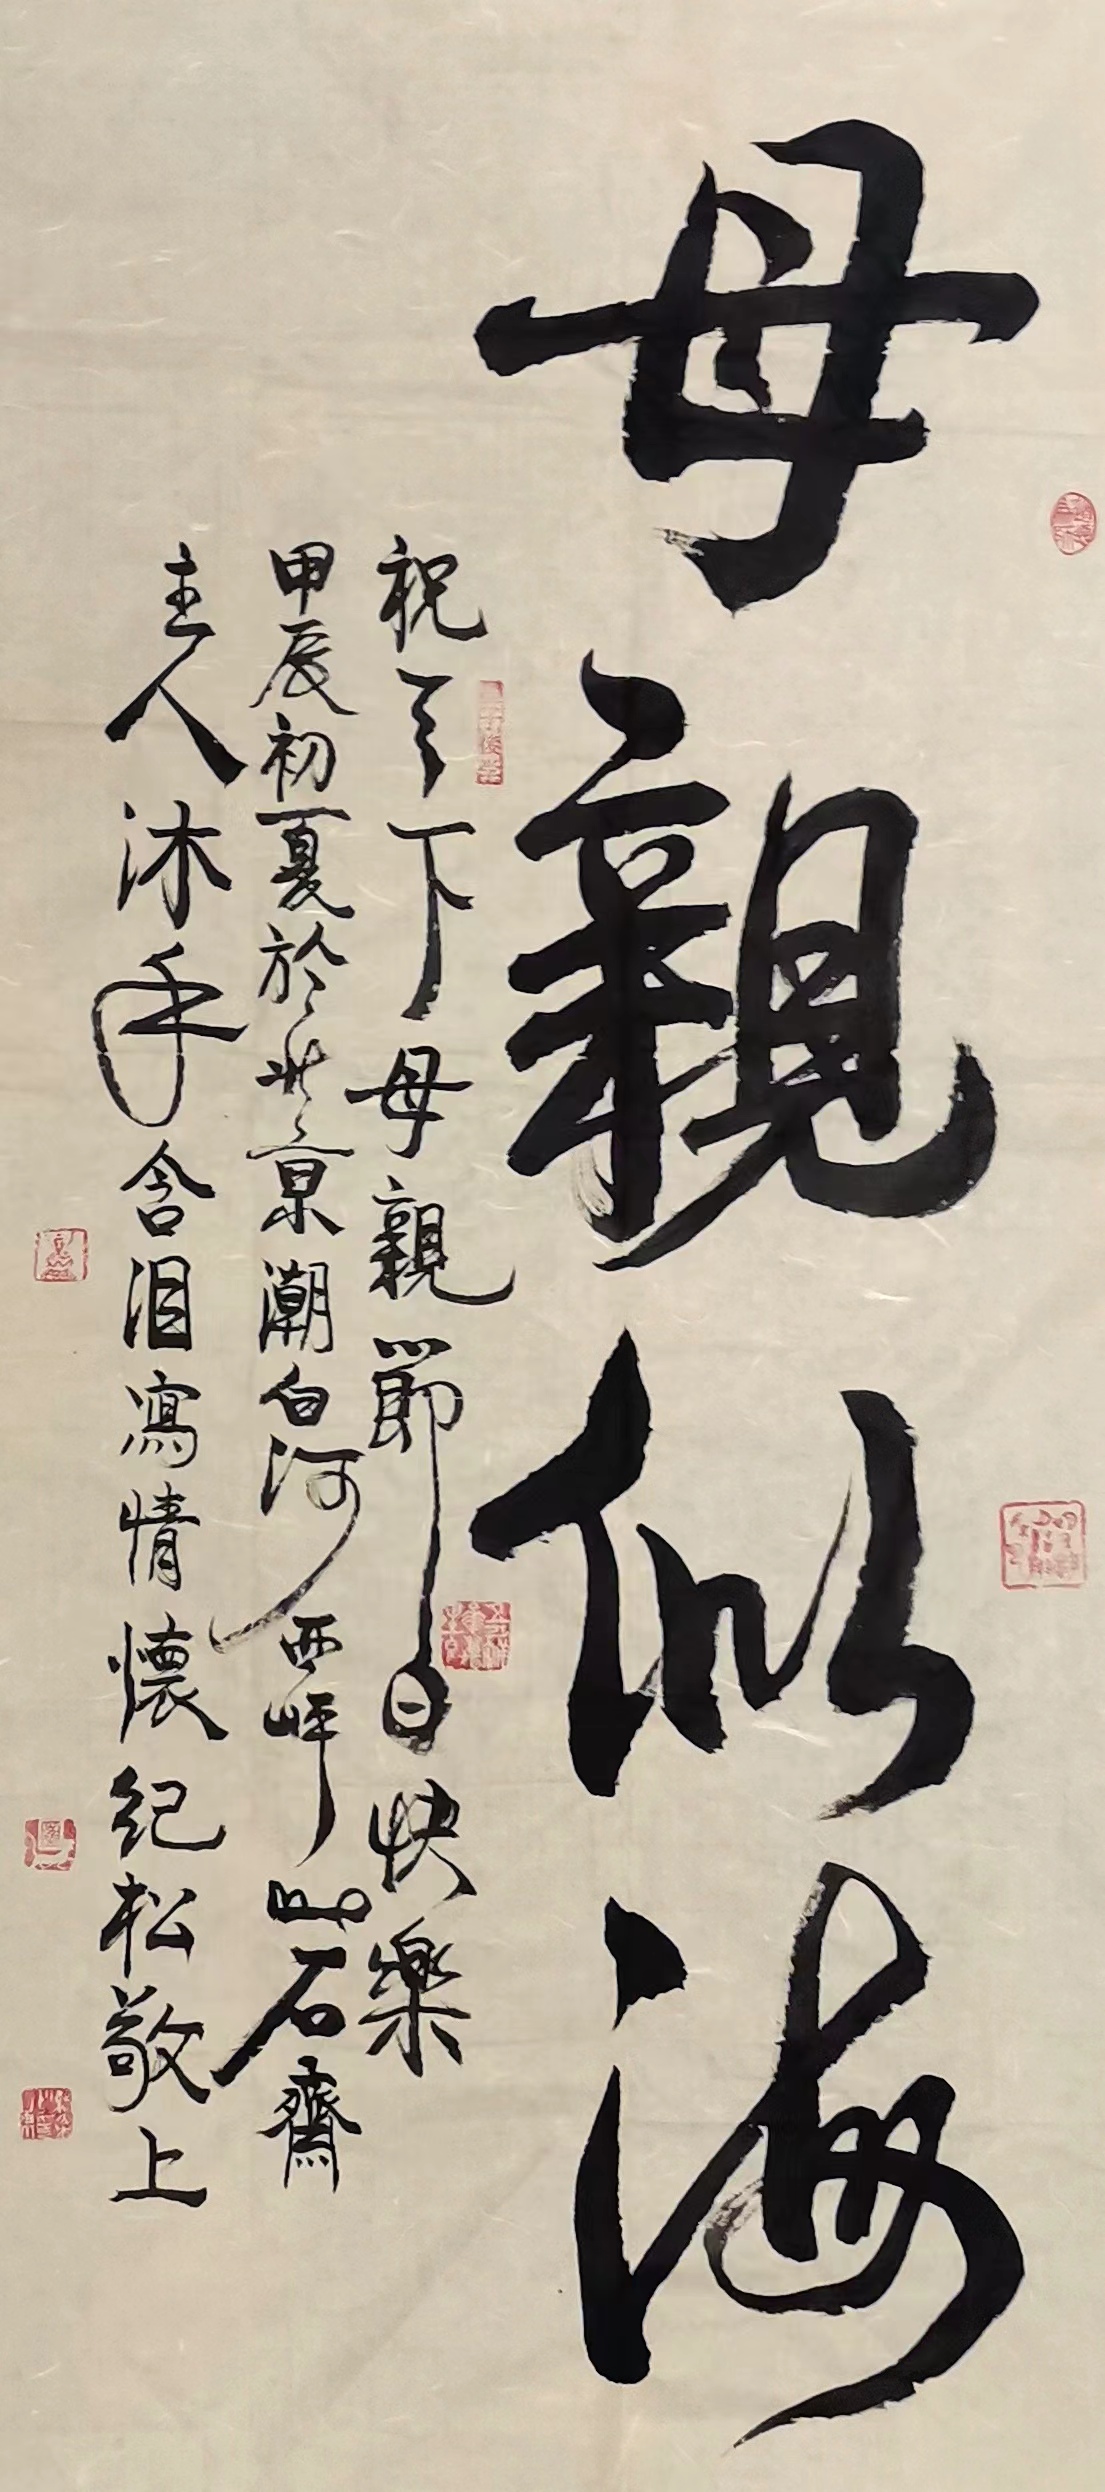 母親似海
祝天下母親節日快樂
甲辰初夏於北京潮白河西岸山石齋
主人沐手含泪寫情懷紀松敬上